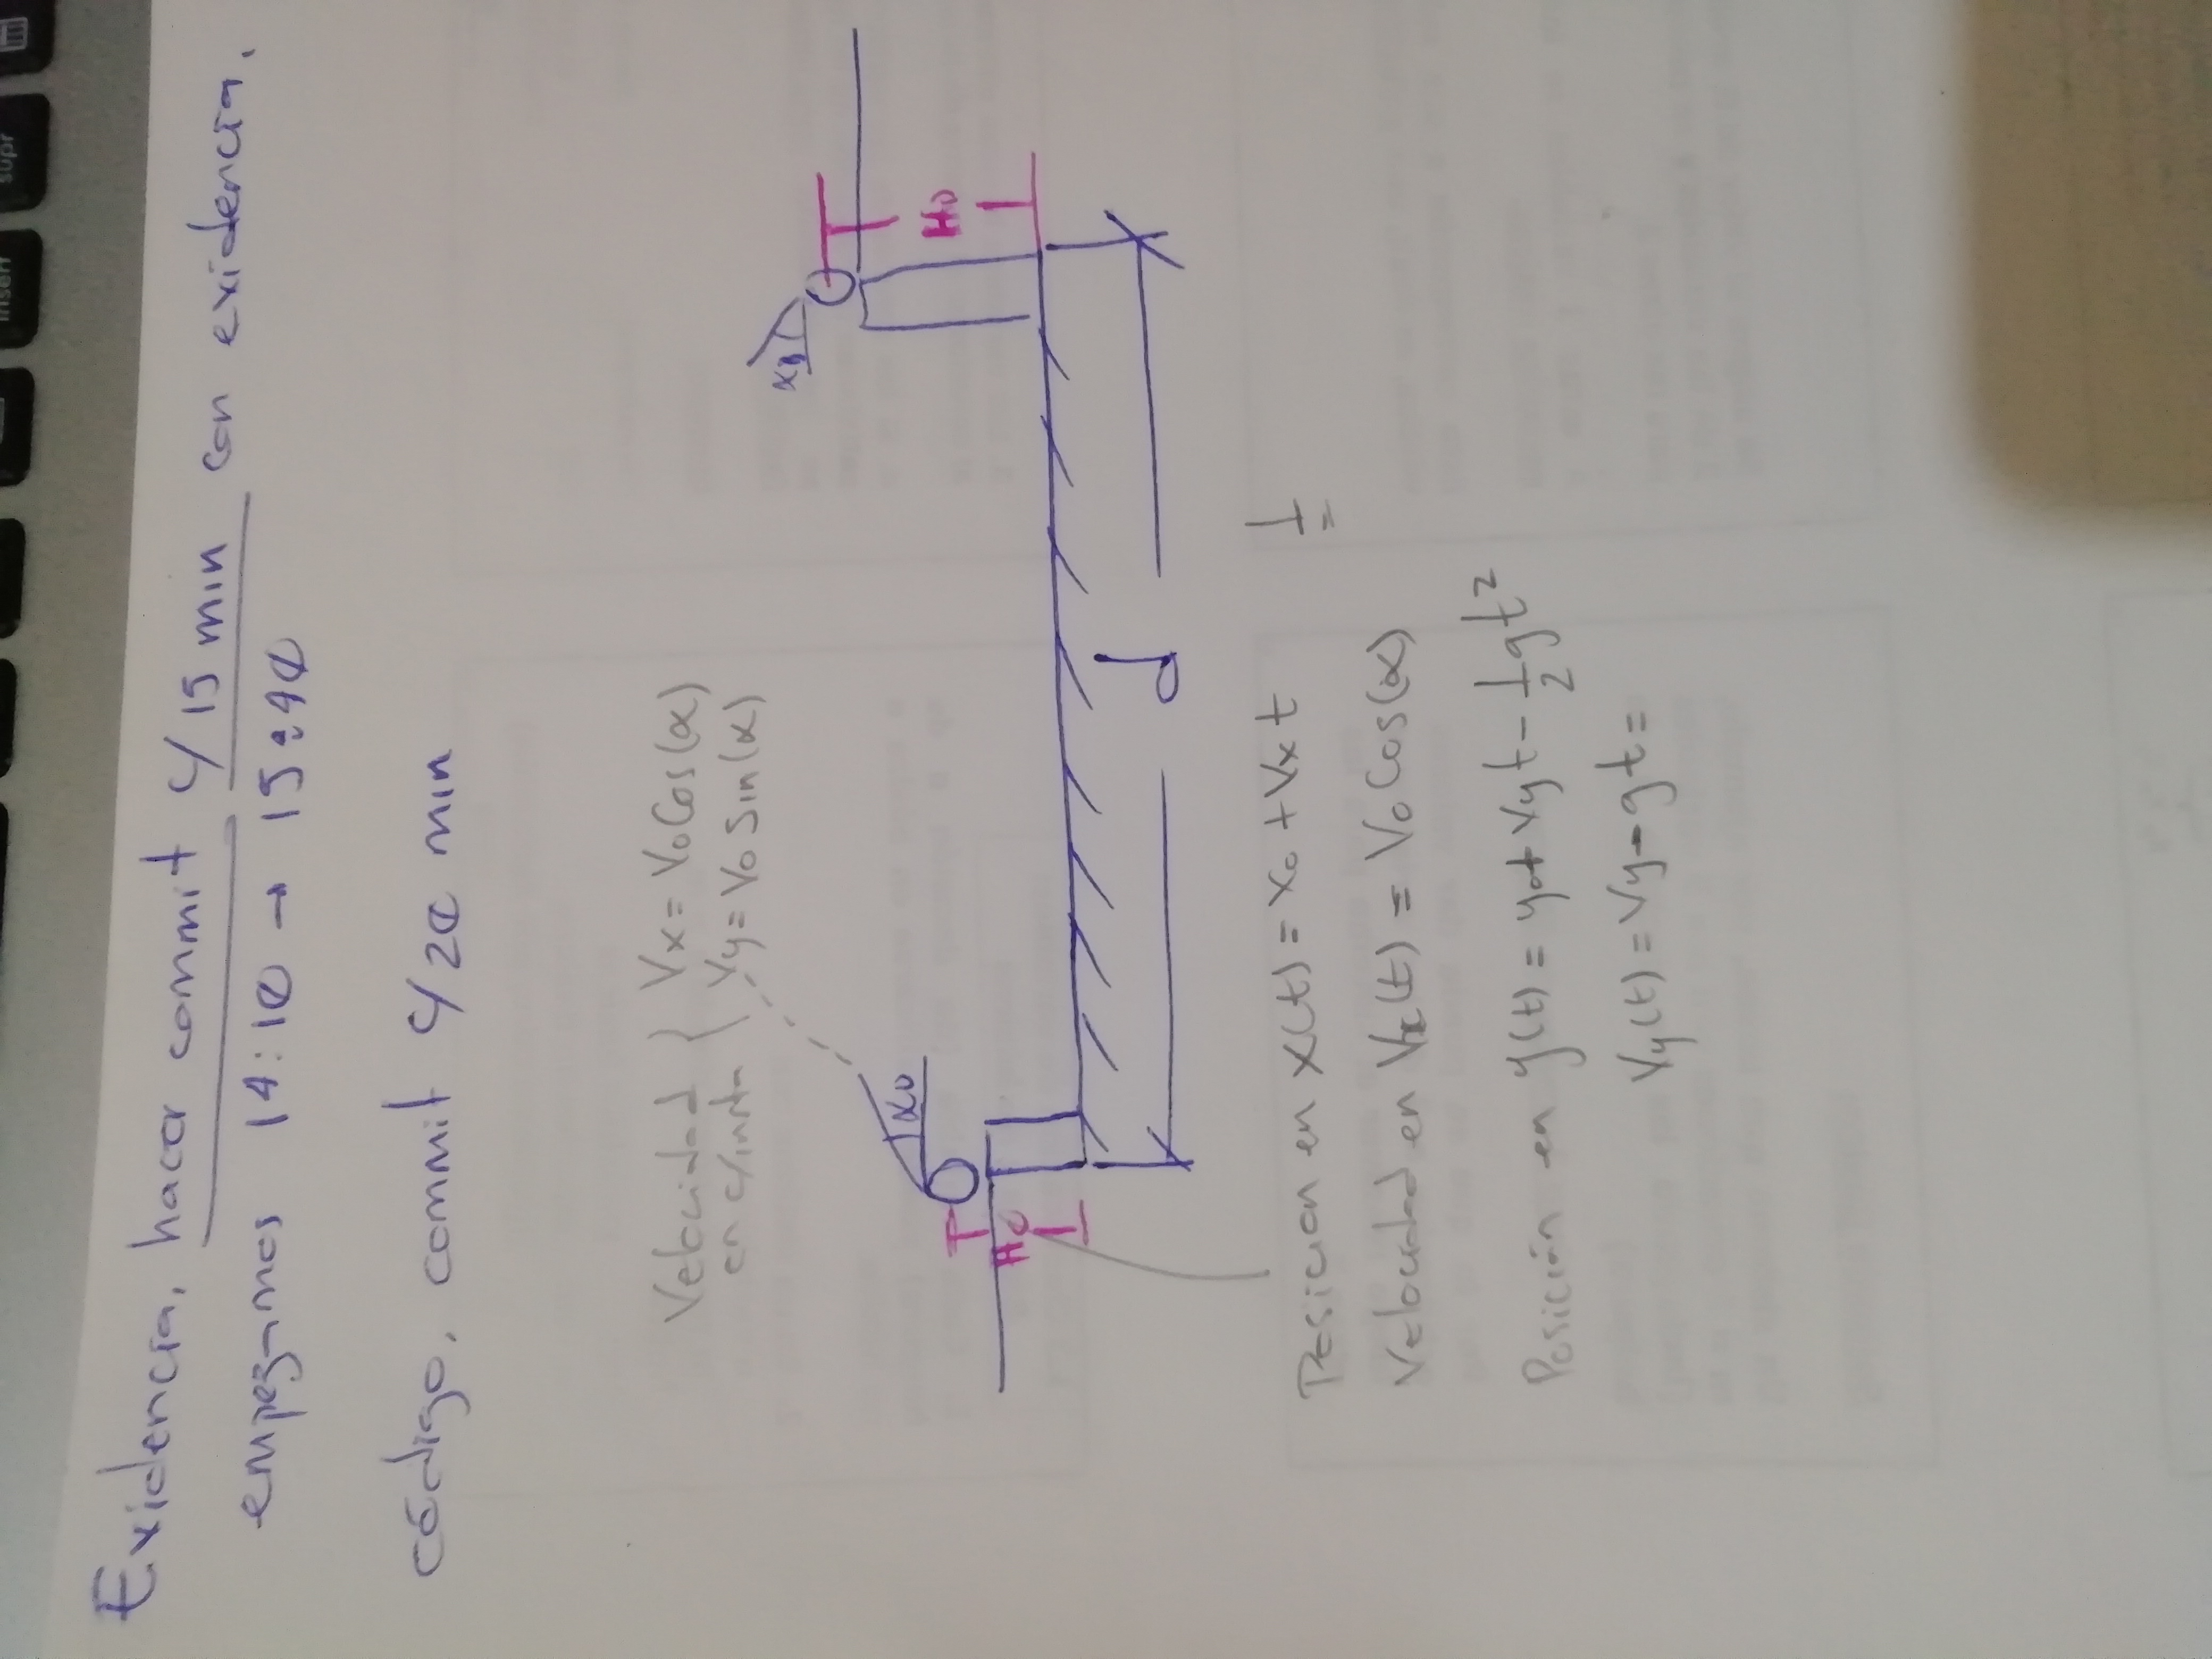 Evidencia, hacer commit c/15 min con evidencia.
empezamos 14:10 → 15:40
código, commit c/20 min
Velocidad en c/inta { Vx = Vo Cos(α)
Vy = Vo Sin(α)
αo
αD
Ho
HD
d
Posición en x(t) = xo + Vx t
Velocidad en Vx(t) = Vo Cos(α)
Posición en y(t) = yo + Vy t - 1/2 g t²
Vy(t) = Vy - g t =
insert
supr